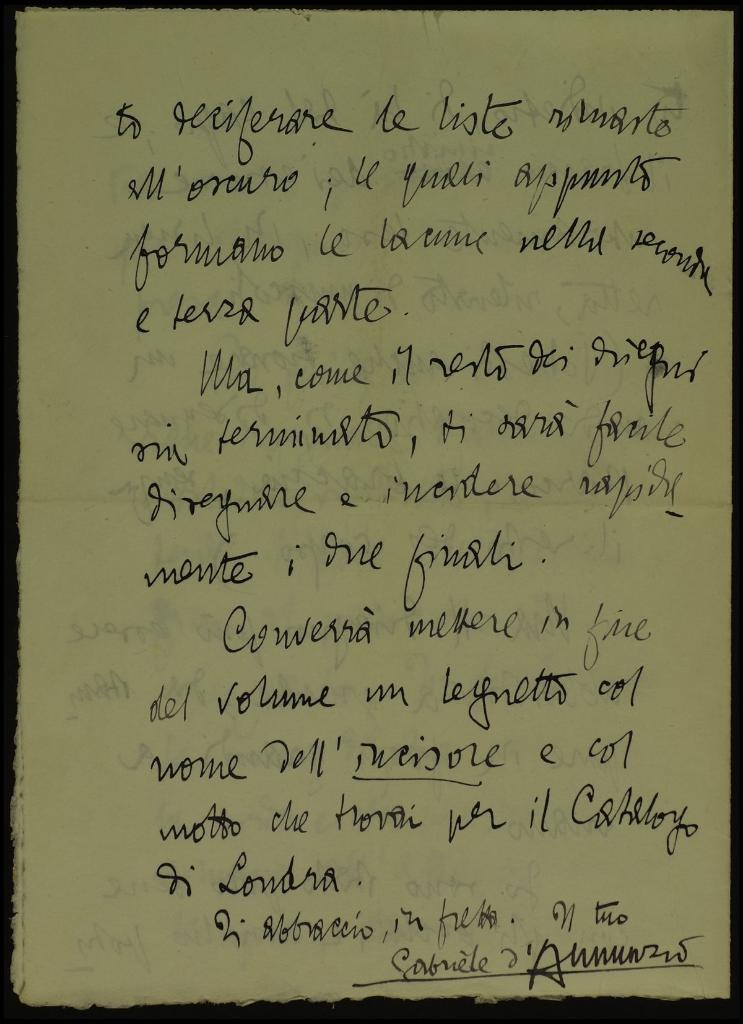 to deciferare le liste rimaste
all'oscuro; le quali appunto
formano le lacune nella seconda
e terza parte.
Ma, come il resto dei disegni
sia terminato, ti sarà facile
disegnare e incidere rapida-
mente i due finali.
Converrà mettere in fine
del volume un legnetto col
nome dell'incisore e col
motto che trovai per il Catalogo
di Londra.
Ti abbraccio, in fretta. Il tuo
Gabriele d'Annunzio